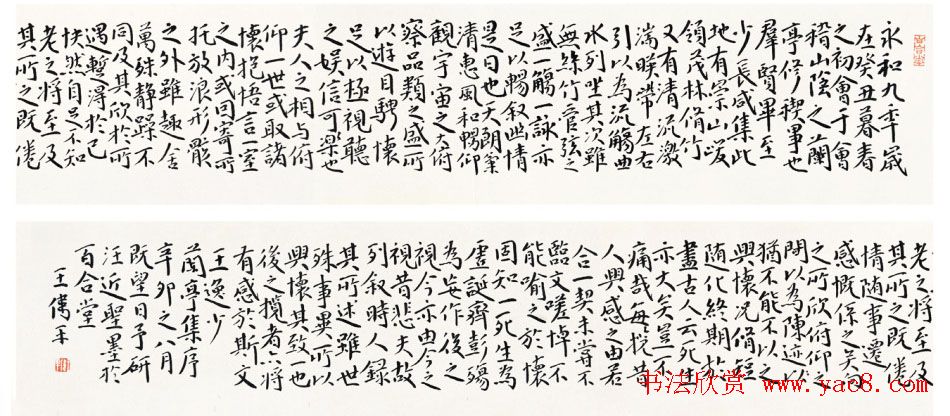 永和九年歲
在癸丑暮春
之初會于會
稽山陰之蘭
亭修禊事也
羣賢畢至
少長咸集此
地有崇山峻
領茂林脩竹
又有清流激
湍暎帶左右
引以為流觴曲
水列坐其次雖
無絲竹管弦之
盛一觴一詠亦
足以暢叙幽情
是日也天朗氣
清惠風和暢仰
觀宇宙之大俯
察品類之盛所
以遊目騁懷
足以極視聽
之娛信可樂也
夫人之相與俯
仰一世或取諸
懷抱悟言一室
之内或因寄所
托放浪形骸
之外雖趣舍
萬殊静躁不
同及其欣於所
遇暫得於己
怏然自足不知
老之將至及
其所之既倦
老之將至及
其所之既倦
情随事遷
感慨係之矣向
之所欣俯仰之
間以為陳迹
猶不能不以之
興懷況脩短
随化終期於
盡古人云死生
亦大矣豈不
痛哉每攬昔
人興感之由若
合一契未嘗不
臨文嗟悼不
能喻之於懷
固知一死生為
虛誕齊彭殤
為妄作後之
視今亦由今之
視昔悲夫故
列叙時人録
其所述雖世
殊事異所以
興懷其致也
後之攬者亦將
有感於斯文
王逸少
蘭亭集序
辛卯之八月
既望日予研
汪近聖墨於
百合堂
王偉平
书法欣赏 www.yac8.com